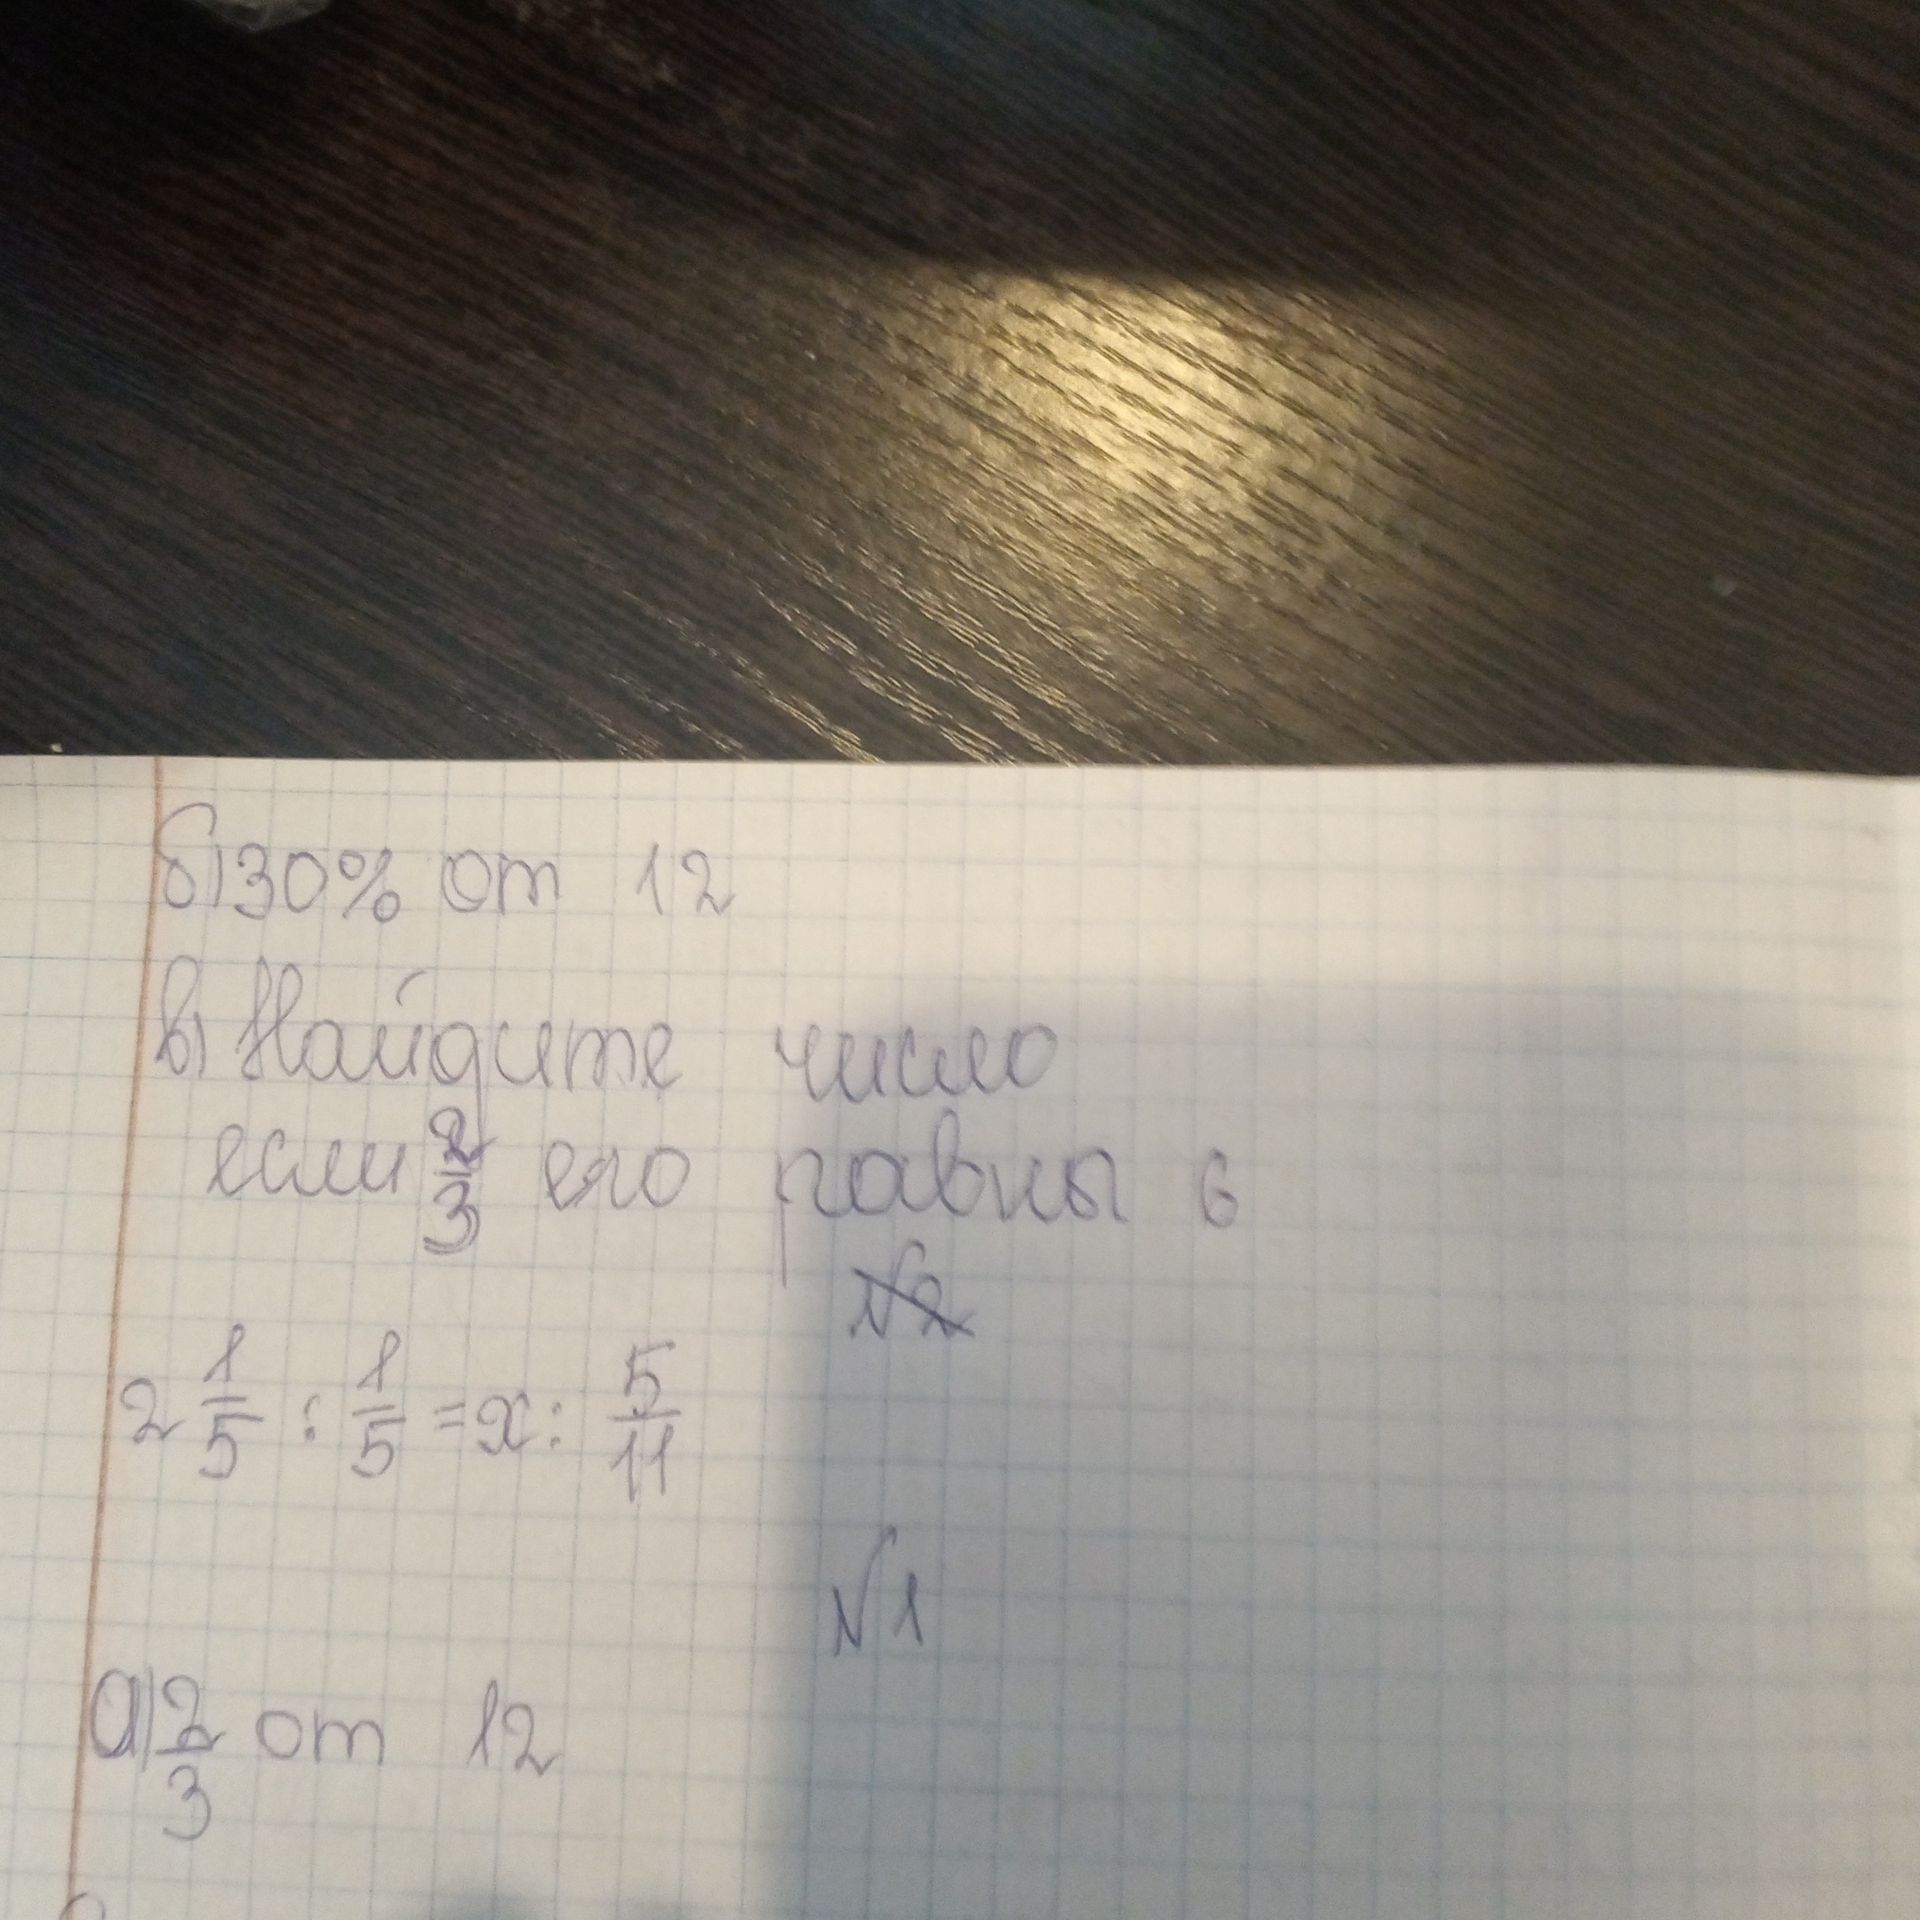 б) 30% от 12
в) Найдите число
если 2/3 его равны 6
№2
2 1/5 : 1/5 = x : 5/11
№1
а) 2/3 от 12